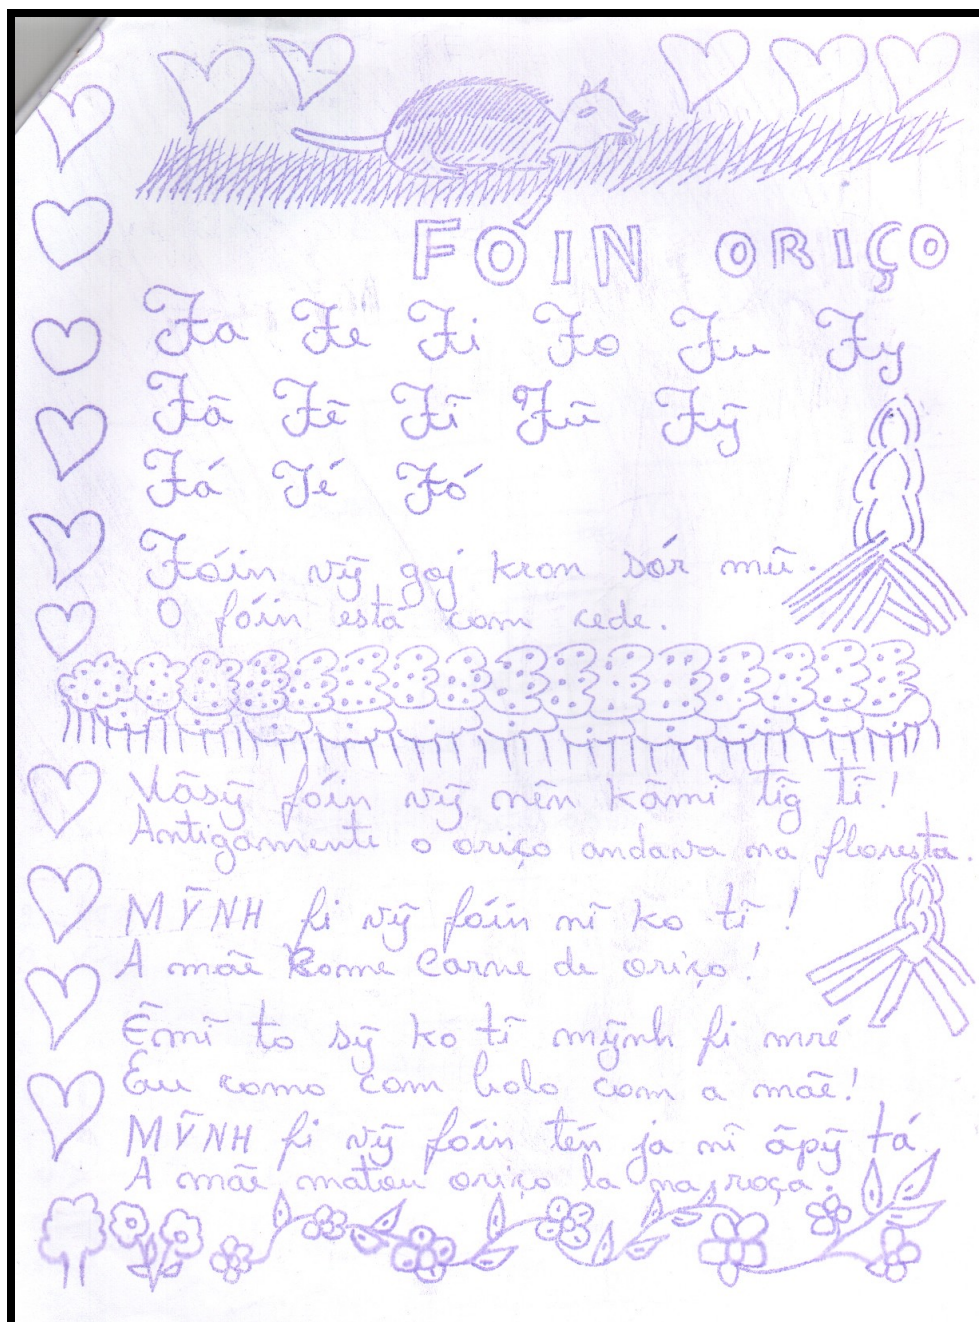 FÓIN ORIÇO
Fa Fe Fi Fo Fu Fy
Fã Fẽ Fĩ Fũ Fỹ
Fá Fé Fó
Fóin vỹ goj kron sór mũ.
O fóin está com cede.
Vãsỹ fóin vỹ nẽn kãmĩ tĩg tĩ!
Antigamente o oriço andava na floresta.
MỸNH fi vỹ fóin nĩ ko tĩ!
A mãe kome carne de oriço!
Ẽmĩ to sỹ ko tĩ mỹnh fi mré
Eu como com bolo com a mãe!
MỸNH fi vỹ fóin tén ja nĩ ãpỹ tá.
A mãe matou oriço la na roça.